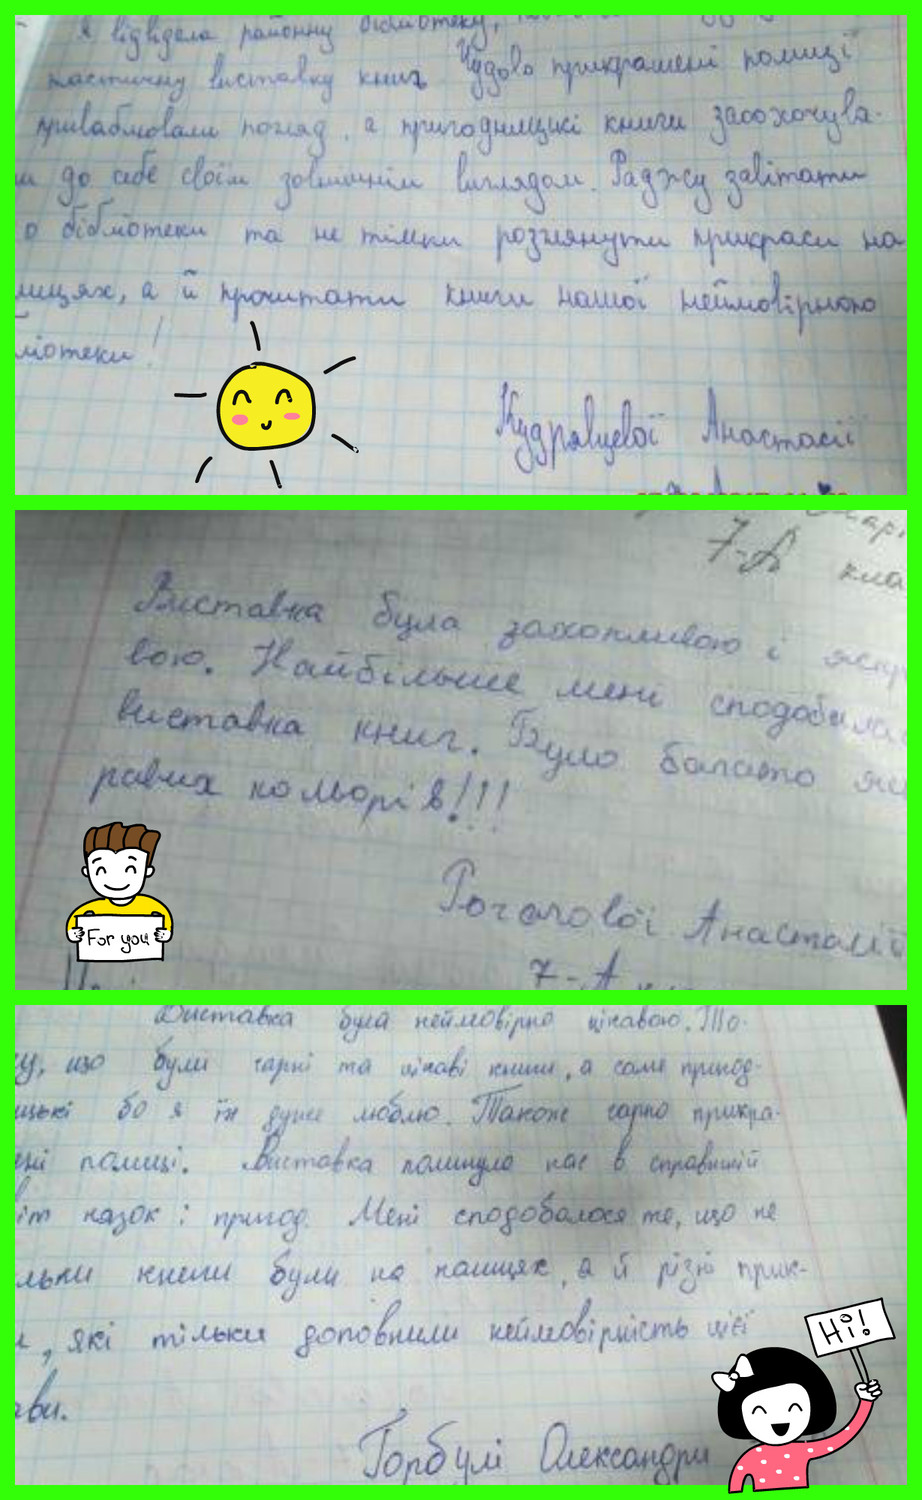 Я відвідала районну бібліотеку,
тастичну виставку книг Чудово прикрашені полиці
приваблювали погляд, а пригодницькі книги заохочува-
и до себе своїм зовнішнім виглядом. Раджу завітати
о бібліотеки та не тільки розглянути прикраси на
лицях, а й прочитати книги нашої неймовірною
ліотеки!
Кудрявцевої Анастасії
7-А кла
Виставка була захопливою і яскр
вою. Найбільше мені сподобилас
виставка книг. Було багато яс
равих кольорів!!!
Рогалової Анастасії
7-А
For you
Виставка була неймовірно цікавою. То-
у, що були гарні та цікаві книги, а саме пригод-
ицькі бо я їх дуже люблю. Також гарно прикра-
ені полиці. Виставка поринула нас в справжній
іт казок і пригод. Мені сподобалося те, що не
льки книги були на полицях, а й різні прик-
и, які тільки доповнили неймовірність цієї
ави.
Горбулі Олександри
Hi!